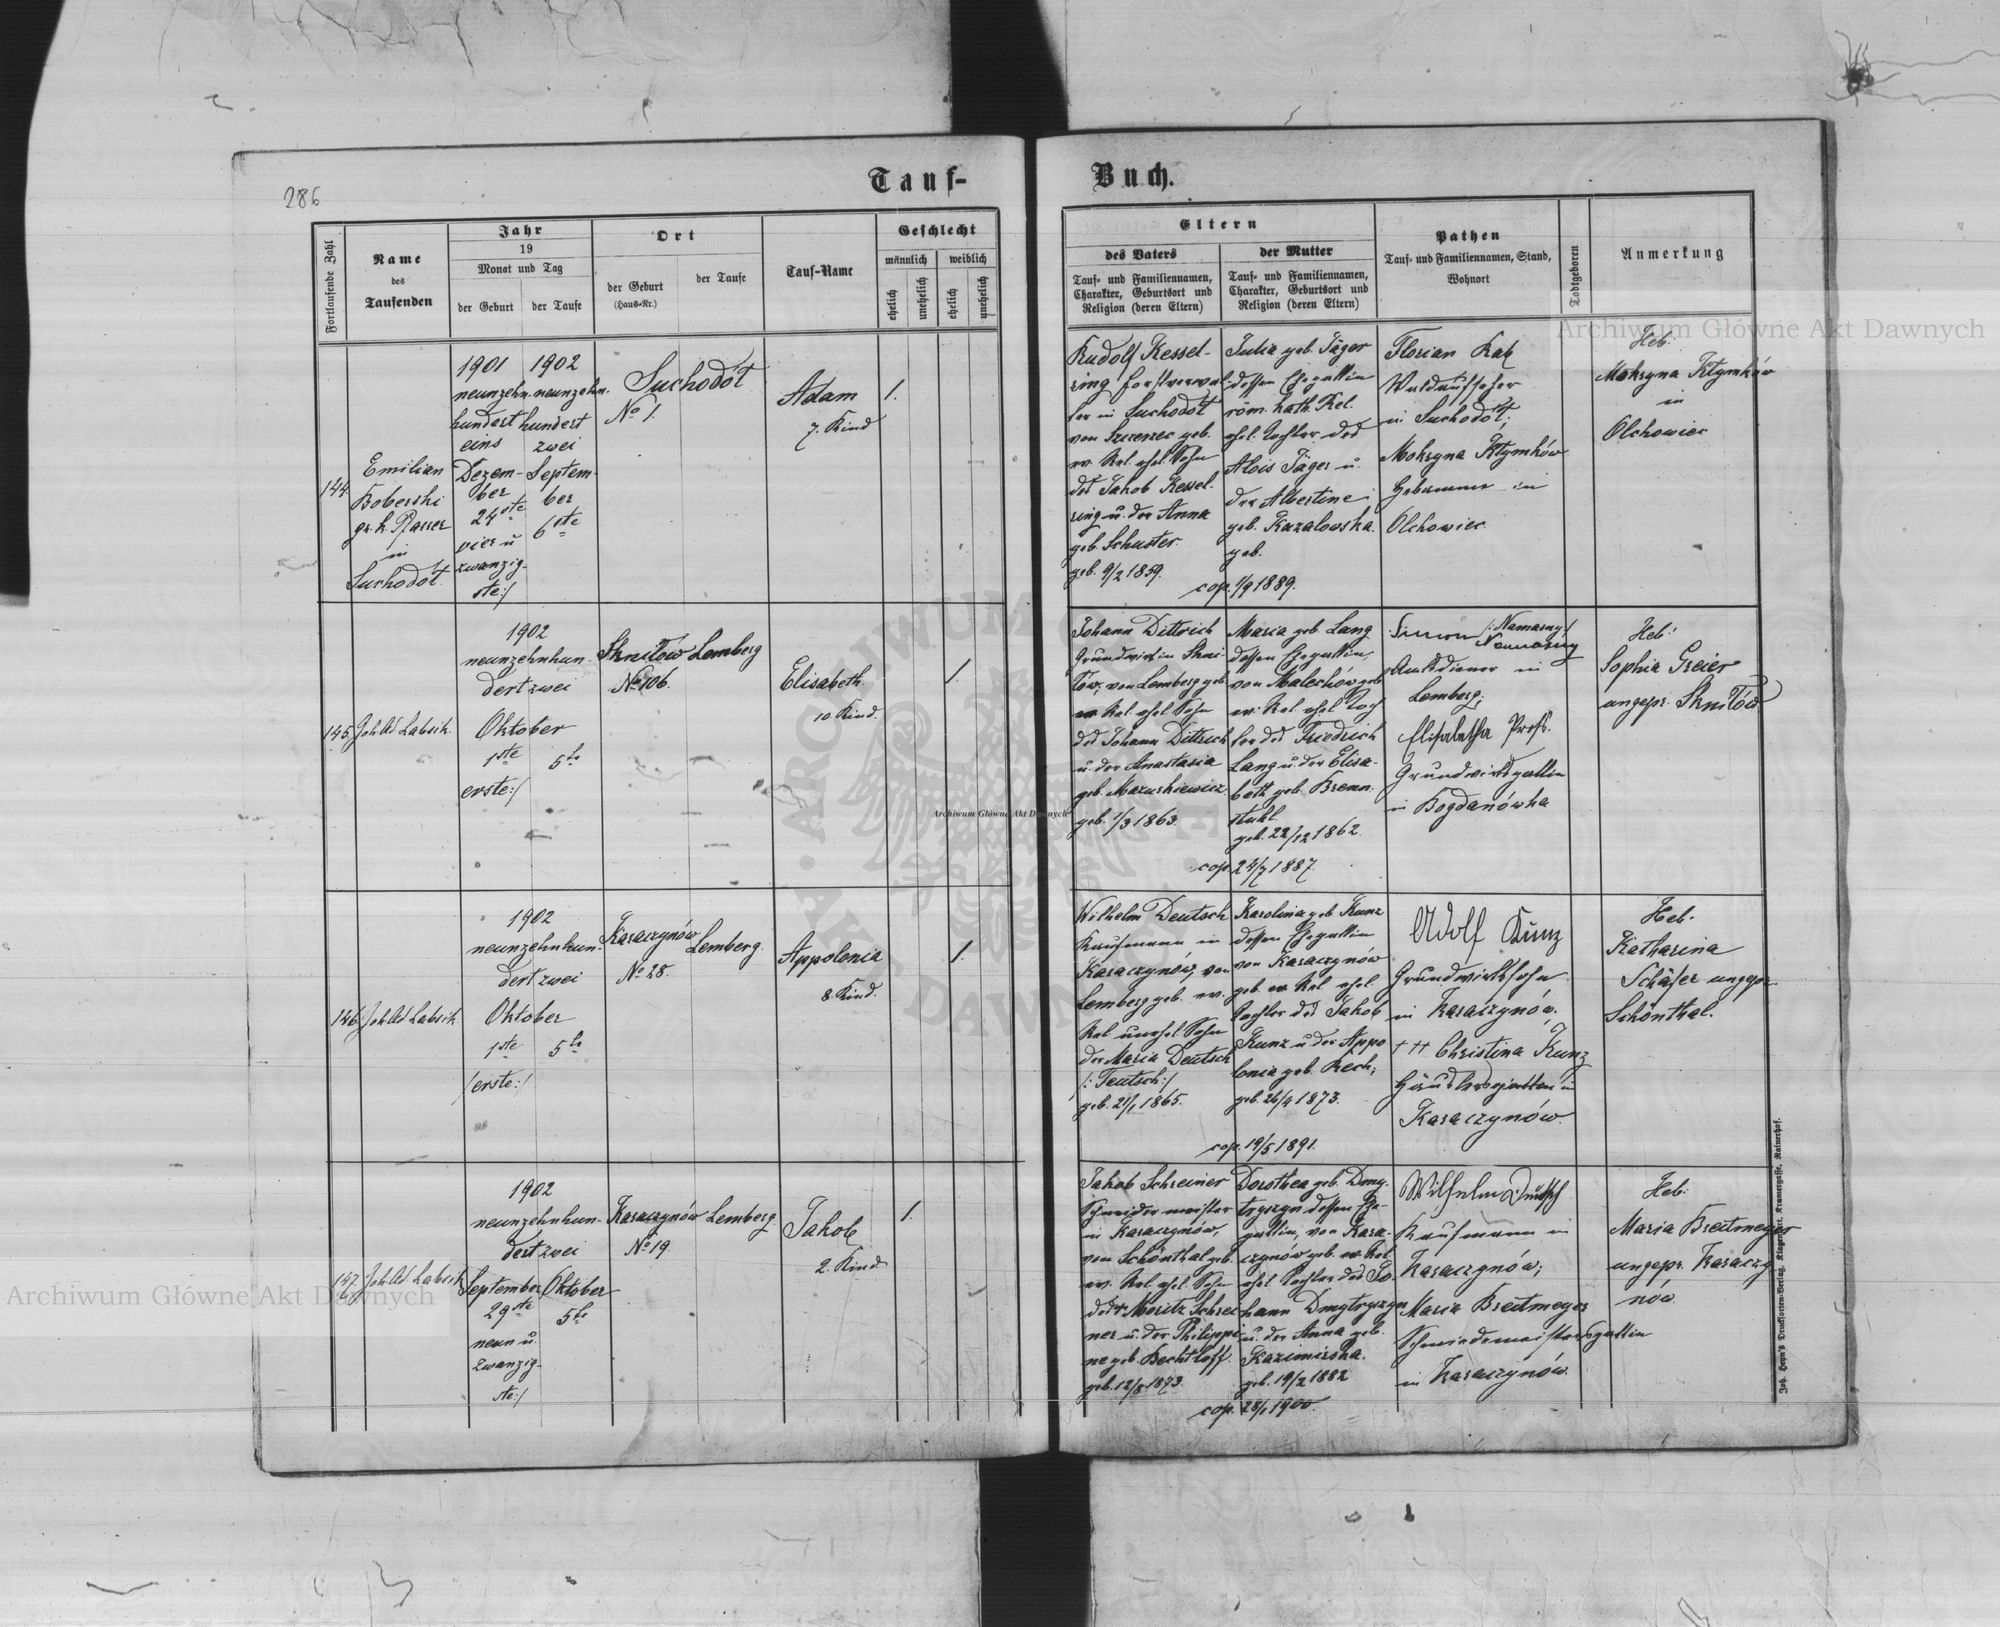 286
Tauf-
Buch.
Fortlaufende Zahl
Name
des
Taufenden
Jahr
19
Monat und Tag
der Geburt
der Taufe
Ort
der Geburt
(Haus-Nr.)
der Taufe
Tauf-Name
Geschlecht
männlich
weiblich
ehelich
unehelich
ehelich
unehelich
Eltern
des Vaters
Tauf- und Familiennamen,
Charakter, Geburtsort und
Religion (deren Eltern)
der Mutter
Tauf- und Familiennamen,
Charakter, Geburtsort und
Religion (deren Eltern)
Pathen
Tauf- und Familiennamen, Stand,
Wohnort
Todtgeboren
Anmerkung
144.
Emilian
Koberski
gr. k. Pfarrer
in
Suchodół
1901
neunzehn-
hundert
eins
Dezem-
ber
24ste
vier u
zwanzig-
ste:/
1902
neunzehn-
hundert
zwei
Septem-
ber
6ste
Suchodół
No 1.
Adam
7. Kind
1.
Rudolf Kessel-
ring Forstverwal-
ter in Suchodół
von Szczerzec geb.
ev. Rel. ehel. Sohn
des Jakob Kessel-
ring u. der Anna
geb. Schuster.
geb. 9/2 1859.
Julia geb. Jäger
dessen Ehegattin
röm. kath. Rel.
ehel. Tochter des
Alois Jäger u.
der Albertine
geb. Kazalowska.
geb.
cop. 1/9 1889.
Florian Kak
Waldaufseher
in Suchodół;
Mokryna Klymków
Hebamme in
Olchowiec
Heb:
Mokryna Klymków
in
Olchowiec
145.
Joh. Ad. Labsik.
1902
neunzehnhun-
dert zwei
Oktober
1ste
5te
erste:/
Sknilów
No 106.
Lemberg
Elisabeth.
10. Kind.
1.
Johann Dittrich
Grundwirt in Skni-
łów, von Lemberg geb
ev. Rel. ehel. Sohn
des Johann Dittrich
u. der Anastasia
geb. Mazurkiewicz
geb. 1/3 1863.
Maria geb. Lang
dessen Ehegattin,
von Malechów geb
ev. Rel. ehel. Toch
ter des Friedrich
Lang u. der Elisa-
beth geb. Brenn-
stuhl.
geb. 22/12 1862.
cop. 24/7 1887.
Simon /: Namarny:/
Amtsdiener in
Lemberg;
Elisabetha
Grundwirtsgattin
in Bogdanówka
Heb:
Sophia Greier
ungepr. Sknilów
146.
Joh. Ad. Labsik
1902
neunzehnhun-
dert zwei
Oktober
1ste
5te
/erste:/
Karaczynów
No 28.
Lemberg.
Appolonia
8. Kind.
1.
Wilhelm Deutsch
Kaufmann in
Karaczynów, von
Lemberg geb. ev.
Rel. unehel. Sohn
der Maria Deutsch
/: Teutsch:/
geb. 21/1 1865.
Karolina geb. Kunz
dessen Ehegattin
von Karaczynów
geb. ev. Rel. ehel.
Tochter des Jakob
Kunz u. der Appo
lonia geb. Rech;
geb. 26/4 1873.
cop. 19/5 1891.
Adolf Kunz
Grundwirtssohn
in Karaczynów;
+++ Christina Kunz
Häuslersgattin in
Karaczynów.
Heb.
Katharina
Schäfer ungepr.
Schönthal.
147.
Joh. Ad. Labsik
1902
neunzehnhun-
dert zwei
September
29ste
neun u.
zwanzig-
ste:/
Oktober
5te
Karaczynów
No 19
Lemberg
Jakob
2. Kind
1.
Jakob Schreiner
Schneidermeister
in Karaczynów,
von Schönthal geb.
ev. Rel. ehel. Sohn
des + Moritz Schrei
ner u. der Philippi-
ne geb. Bechtloff.
geb. 12/8 1873.
Dorothea geb. Dmy-
tryszyn dessen Ehe-
gattin, von Kara-
czynów geb. ev. Rel.
ehel. Tochter des Jo-
hann Dmytryszyn
u. der Anna geb.
Kazimirska.
geb. 19/2 1882
cop. 28/1 1900.
Wilhelm Deutsch
Kaufmann in
Karaczynów;
Maria Breitmeyer
Schmiedemeistersgattin
in Karaczynów.
Heb:
Maria Breitmeyer
ungepr. Karaczy
nów.
Joh. Heyn's Drucksorten-Verlag, Klagenfurt, Kramergasse, Rainerhof.
Archiwum Główne Akt Dawnych
Archiwum Główne Akt Dawnych
Archiwum Główne Akt Dawnych